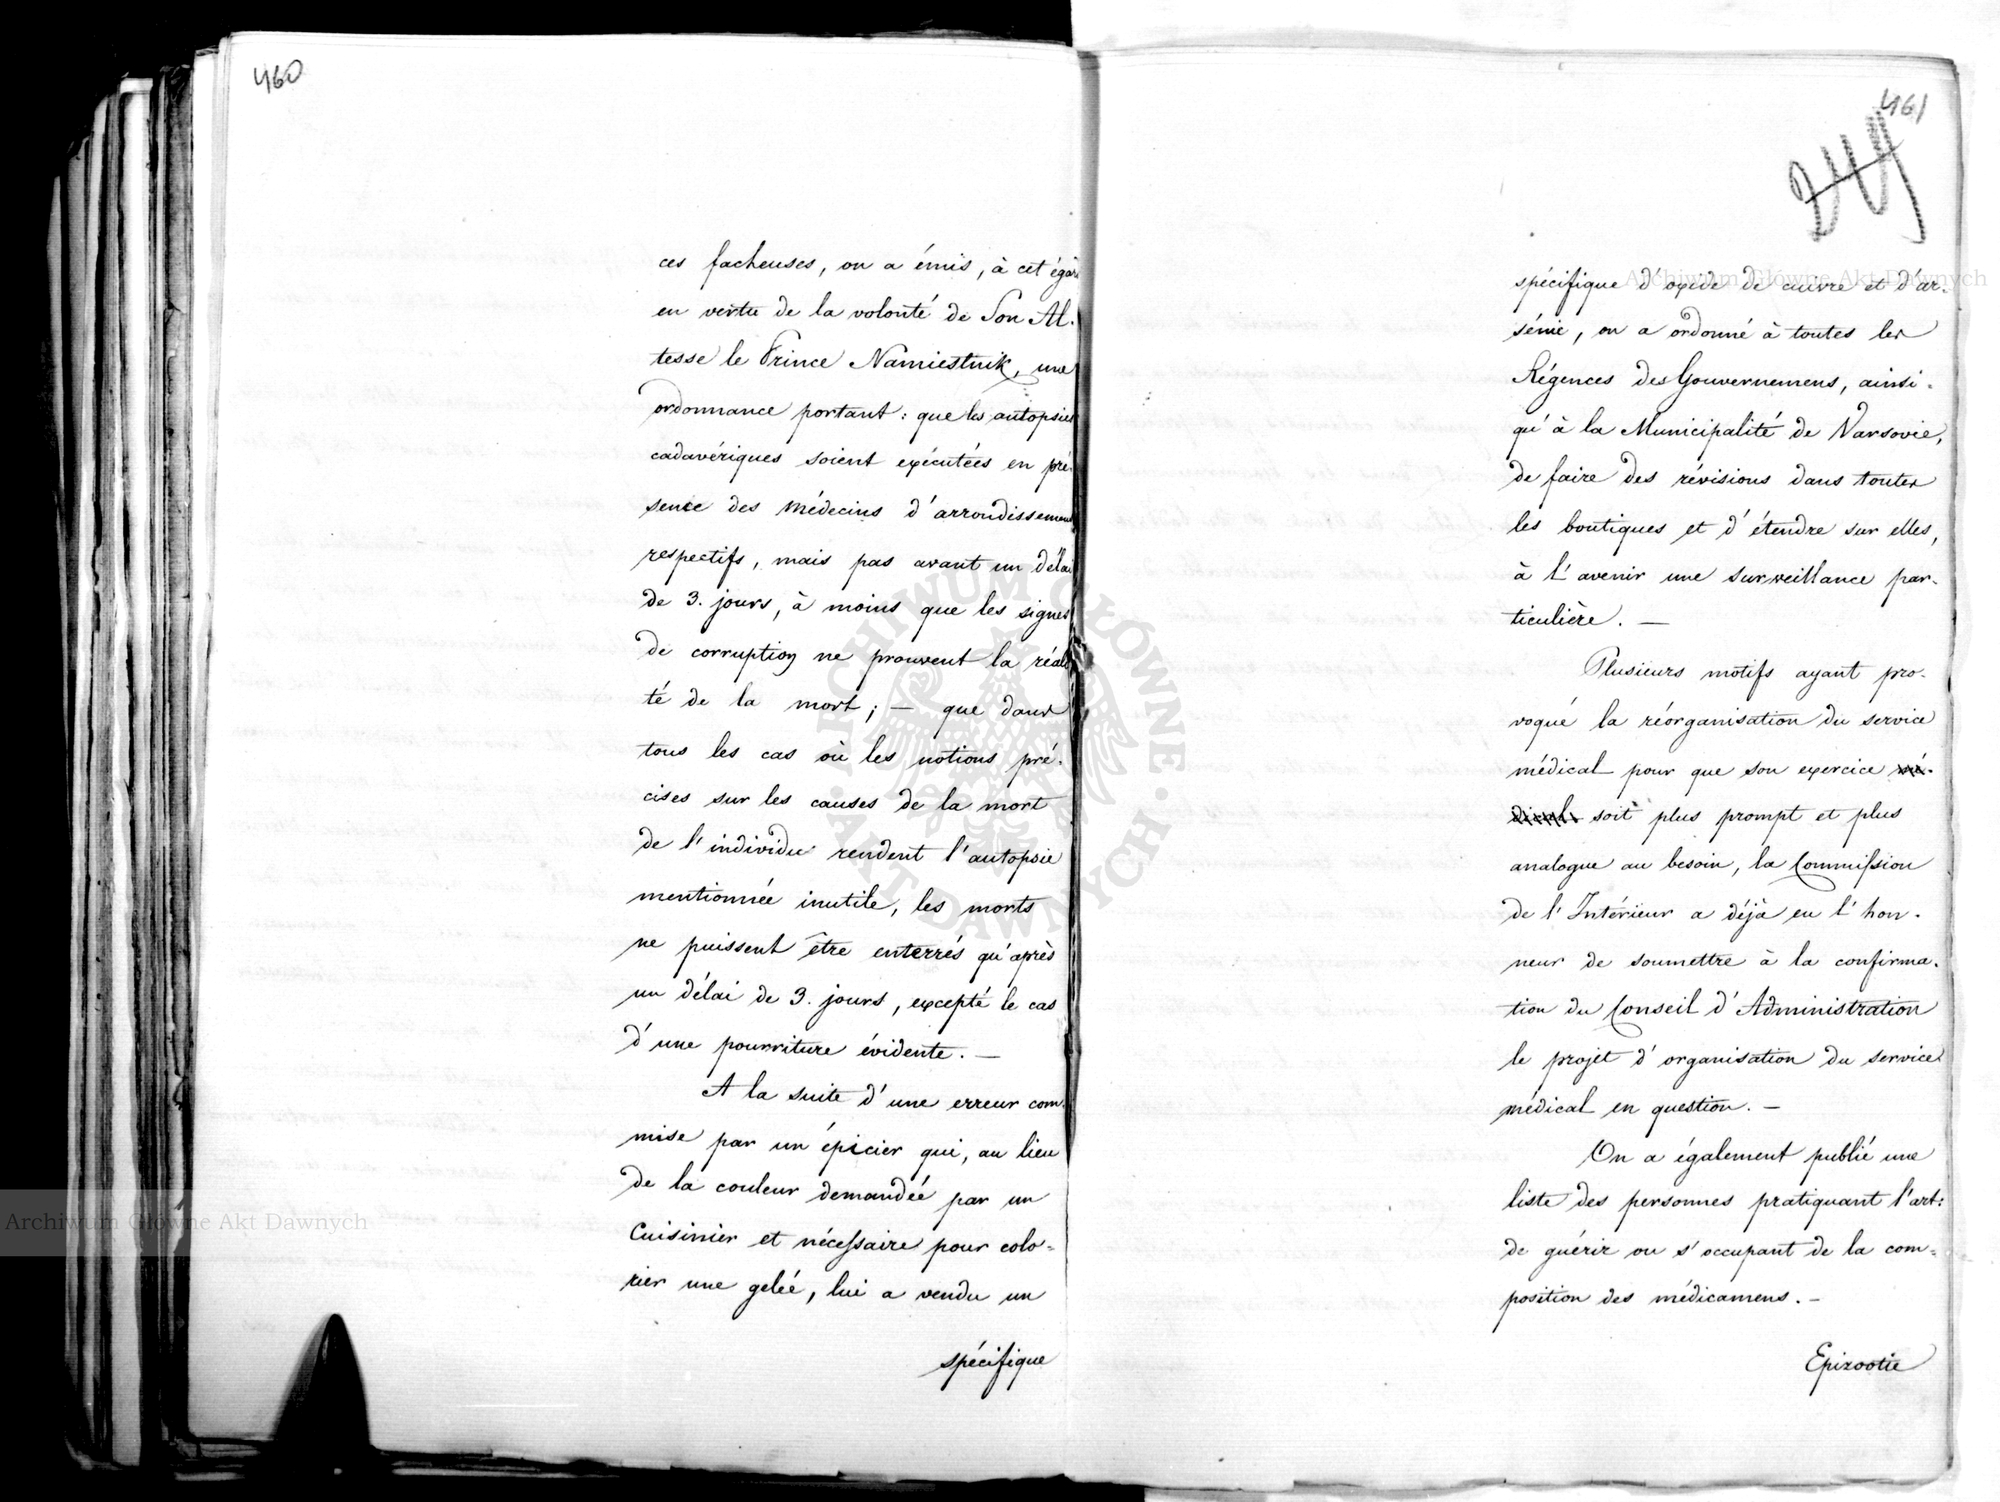 460
ces facheuses, on a émis, à cet égard
en vertu de la volonté de Son Al-
tesse le Prince Namiestnik, une
ordonnance portant: que les autopsies
cadavériques soient exécutées en pré-
sence des médecins d'arrondissement
respectifs, mais pas avant un délai
de 3. jours, à moins que les signes
de corruption ne prouvent la réali
té de la mort; — que dans
tous les cas où les notions pré-
cises sur les causes de la mort
de l'individu rendent l'autopsie
mentionnée inutile, les morts
ne puissent être enterrés qu'après
un délai de 3. jours, excepté le cas
d'une pourriture évidente. —
A la suite d'une erreur com-
mise par un épicier qui, au lieu
de la couleur demandée par un
Cuisinier et nécessaire pour colo-
rier une gelée, lui a vendu un
spécifique
461
249
spécifique d'oxide de cuivre et d'ar-
sénic, on a ordonné à toutes les
Régences des Gouvernemens, ainsi-
qu'à la Municipalité de Varsovie,
de faire des révisions dans toutes
les boutiques et d'étendre sur elles,
à l'avenir une surveillance par-
ticulière. —
Plusieurs motifs ayant pro-
voqué la réorganisation du service
médical pour que son exercice mé-
dical soit plus prompt et plus
analogue au besoin, la Commission
de l'Intérieur a déjà eu l'hon-
neur de soumettre à la confirma-
tion du Conseil d'Administration
le projet d'organisation du service
médical en question. —
On a également publié une
liste des personnes pratiquant l'art:
de guérir ou s'occupant de la com-
position des médicamens. —
Epizootie
Archiwum Główne Akt Dawnych
Archiwum Główne Akt Dawnych
ARCHIWUM GŁÓWNE · AKT DAWNYCH ·